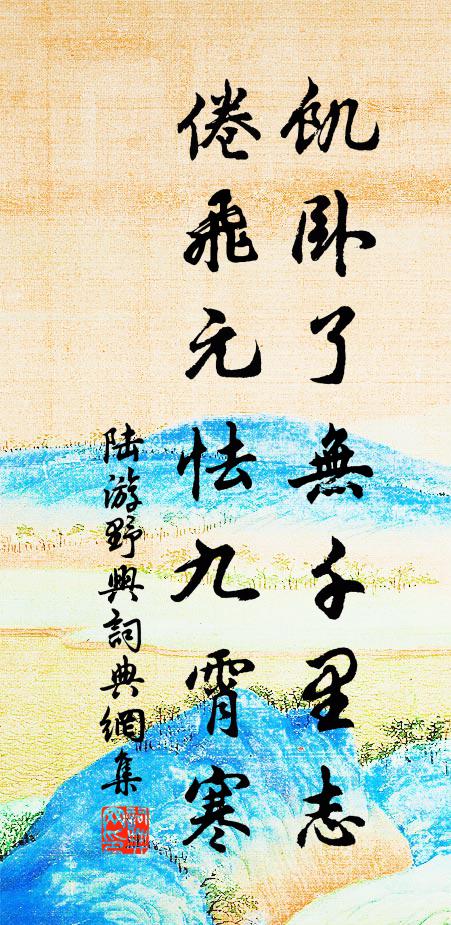 飢卧了無千里志
倦飛元怯九霄寒
陆游野興詞典網集